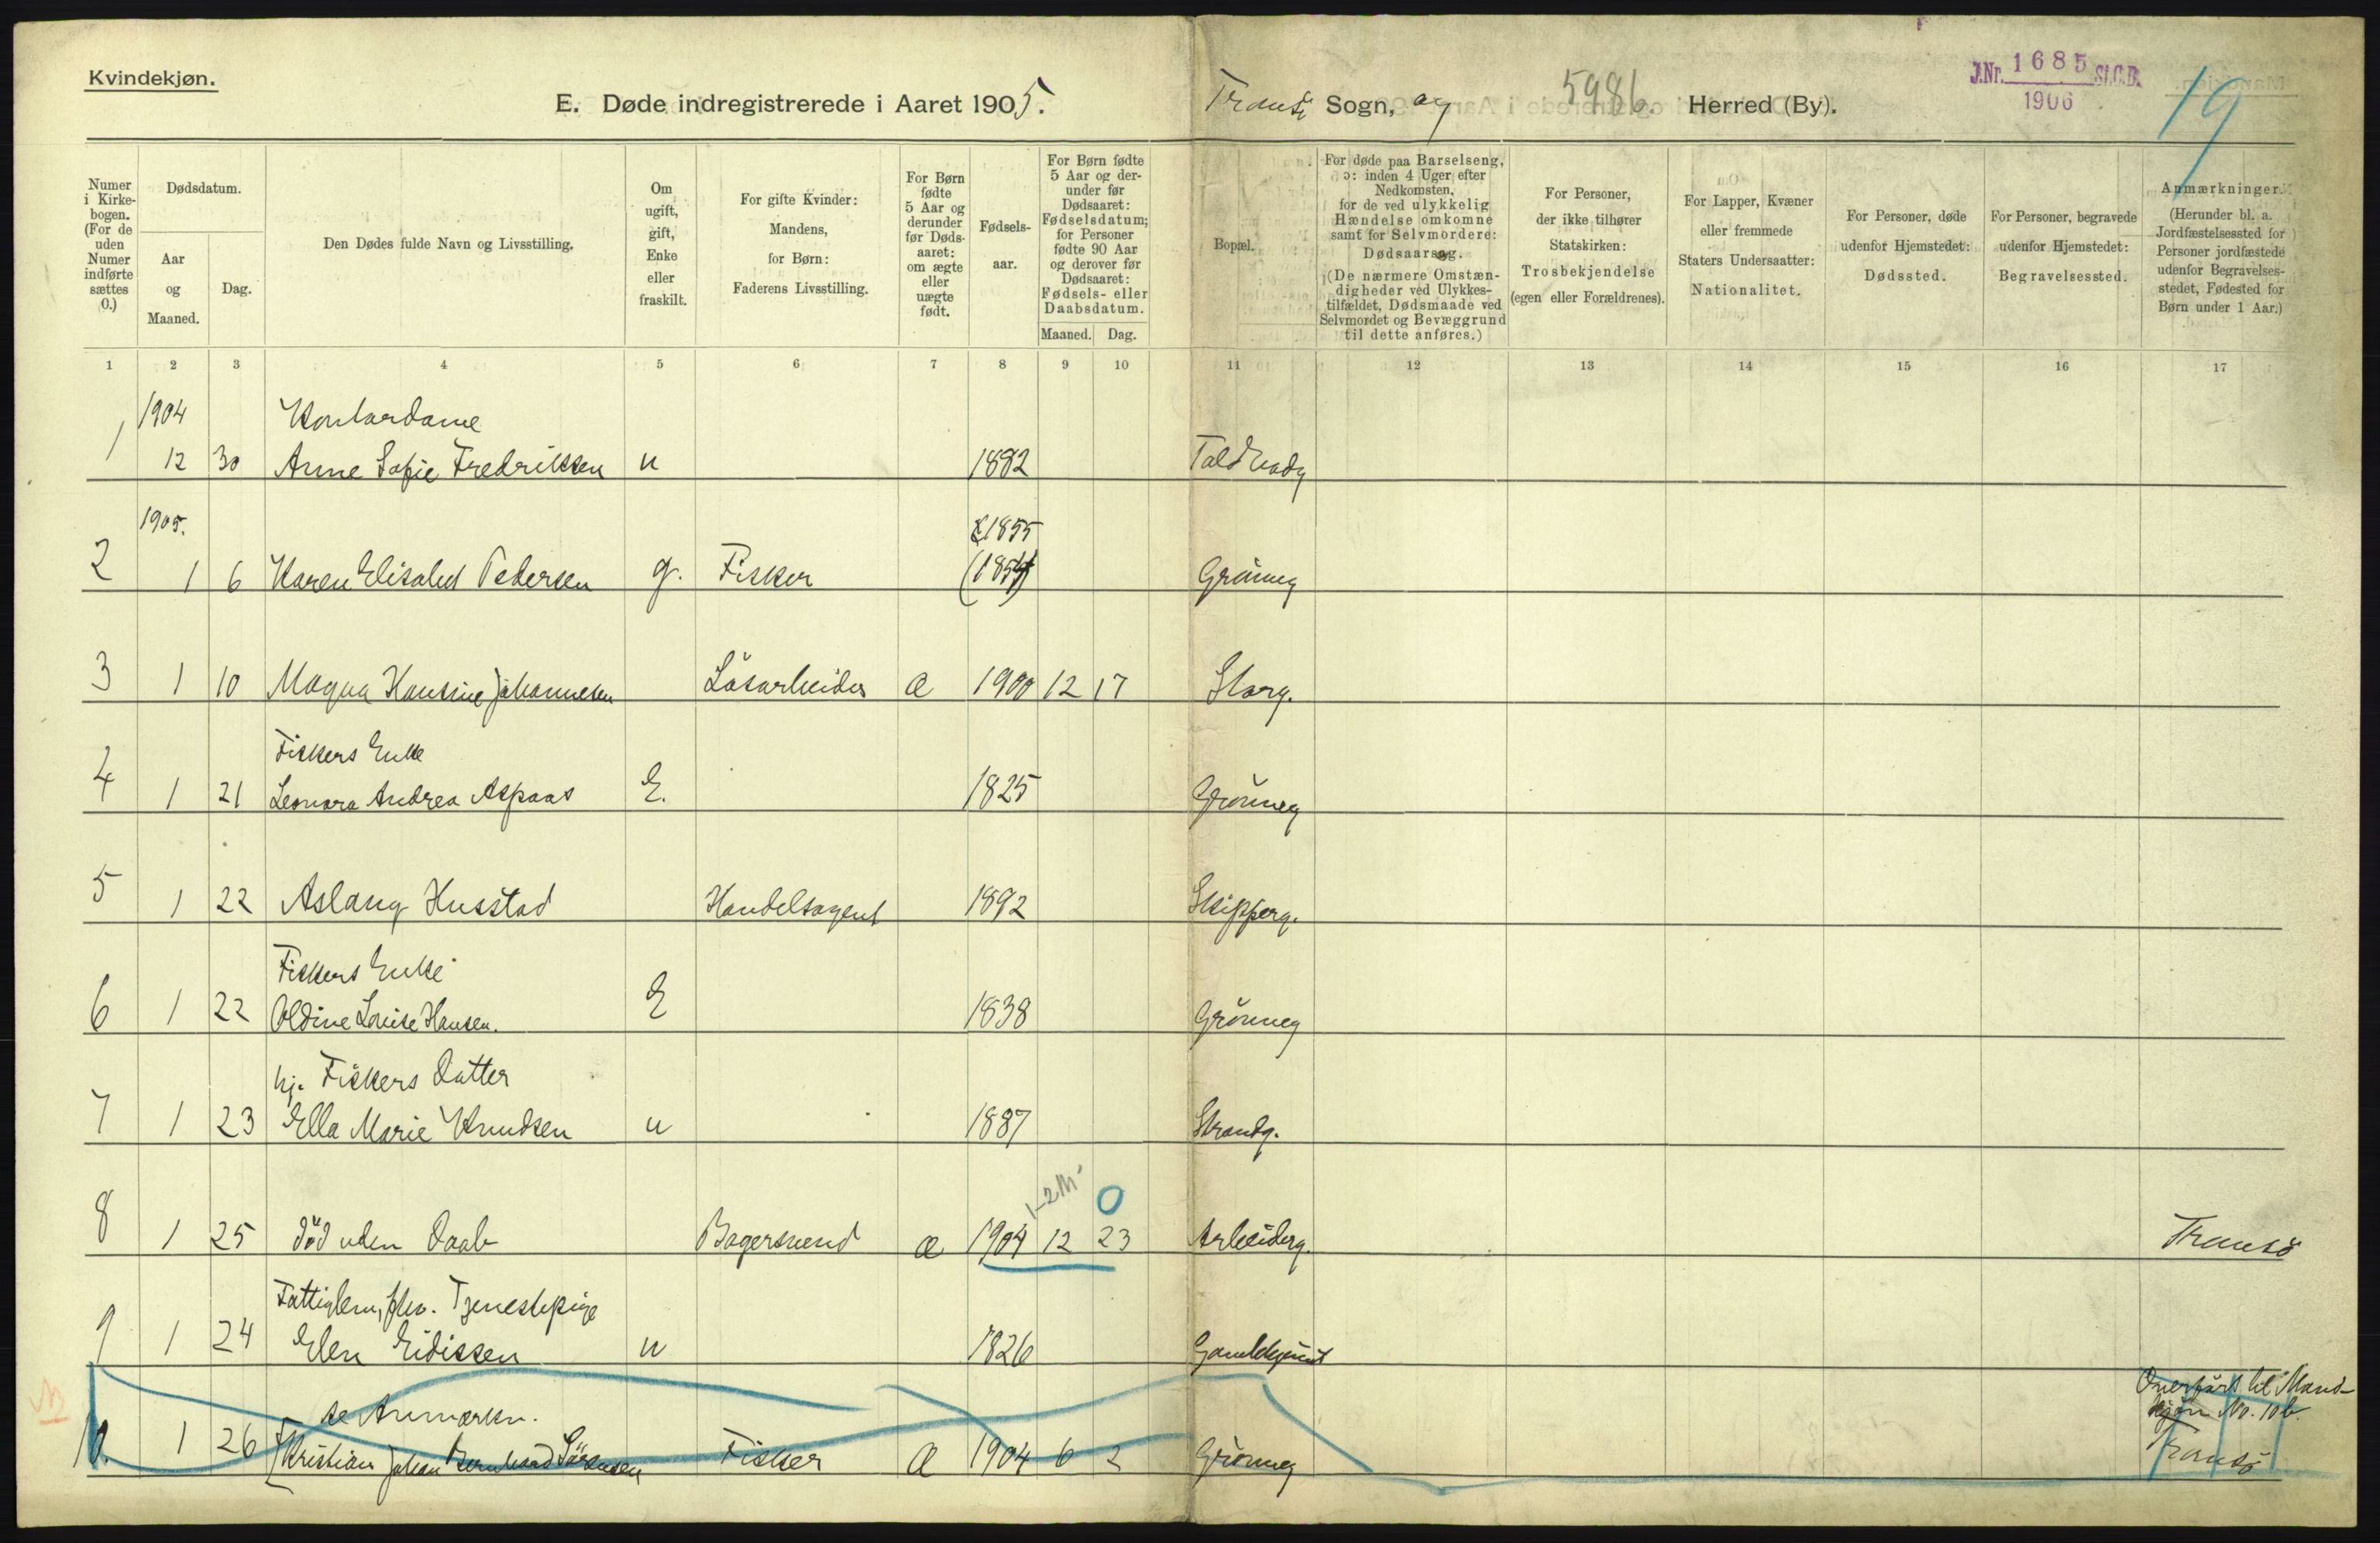 Kvindekjøn.
E. Døde indregistrerede i Aaret 1905.
Tromsö Sogn, og 5986. Herred (By).
J.Nr. 1685 St.C.B.
1906
19
Numer i Kirkebogen. (For de uden Numer indførte sættes 0.)
Dødsdatum.
Aar og Maaned.
Dag.
Den Dødes fulde Navn og Livsstilling.
Om ugift, gift, Enke eller fraskilt.
For gifte Kvinder: Mandens, for Børn: Faderens Livsstilling.
For Børn fødte 5 Aar og derunder før Dødsaaret: om ægte eller uægte født.
Fødselsaar.
For Børn fødte 5 Aar og derunder før Dødsaaret: Fødselsdatum; for Personer fødte 90 Aar og derover før Dødsaaret: Fødsels- eller Daabsdatum.
Maaned. Dag.
Bopæl.
For døde paa Barselseng, ɔ: inden 4 Uger efter Nedkomsten, for de ved ulykkelig Hændelse omkomne samt for Selvmordere: Dødsaarsag. (De nærmere Omstændigheder ved Ulykkestilfældet, Dødsmaade ved Selvmordet og Bevæggrund til dette anføres.)
For Personer, der ikke tilhører Statskirken: Trosbekjendelse (egen eller Forældrenes).
For Lapper, Kvæner eller fremmede Staters Undersaatter: Nationalitet.
For Personer, døde udenfor Hjemstedet: Dødssted.
For Personer, begravede udenfor Hjemstedet: Begravelsessted.
Anmærkninger. (Herunder bl. a. Jordfæstelsessted for Personer jordfæstede udenfor Begravelsesstedet, Fødested for Børn under 1 Aar.)
1 2 3 4 5 6 7 8 9 10 11 12 13 14 15 16 17
1904 Kontordame
1 12 30 Anne Sofie Fredriksen u 1882
1905. 1855
2 1 6 Karen Elisabet Pedersen g. Fisker (1854) Grönneg
3 1 10 Magna Hansine Johannesen Lösarbeider Æ 1900 12 17 Storg.
Fiskers Enke
4 1 21 Leonora Andrea Aspaas E. 1825 Grönneg
5 1 22 Aslaug Husstad Handelsagent 1892 Skipperg.
Fiskers Enke
6 1 22 Oldine Louise Hansen. E 1838 Grönneg
hj. Fiskers Datter
7 1 23 Ella Marie Knudsen u 1887 Strandg.
1-2 M 0
8 1 25 död uden Daab Bagersvend Æ 1904 12 23 Arbeiderg. Tromsö
Fattiglem, fhv. Tjenestepige
9 1 24 Elen Eidissen u 1826 Gamlehjemt
se Anmærkn. Overfört til Mand-
kjøn No. 10b.
10. 1 26 [Kristian Johan Bernhard Sörensen Fisker Æ 1904 6 2 Grönneg Tromsö